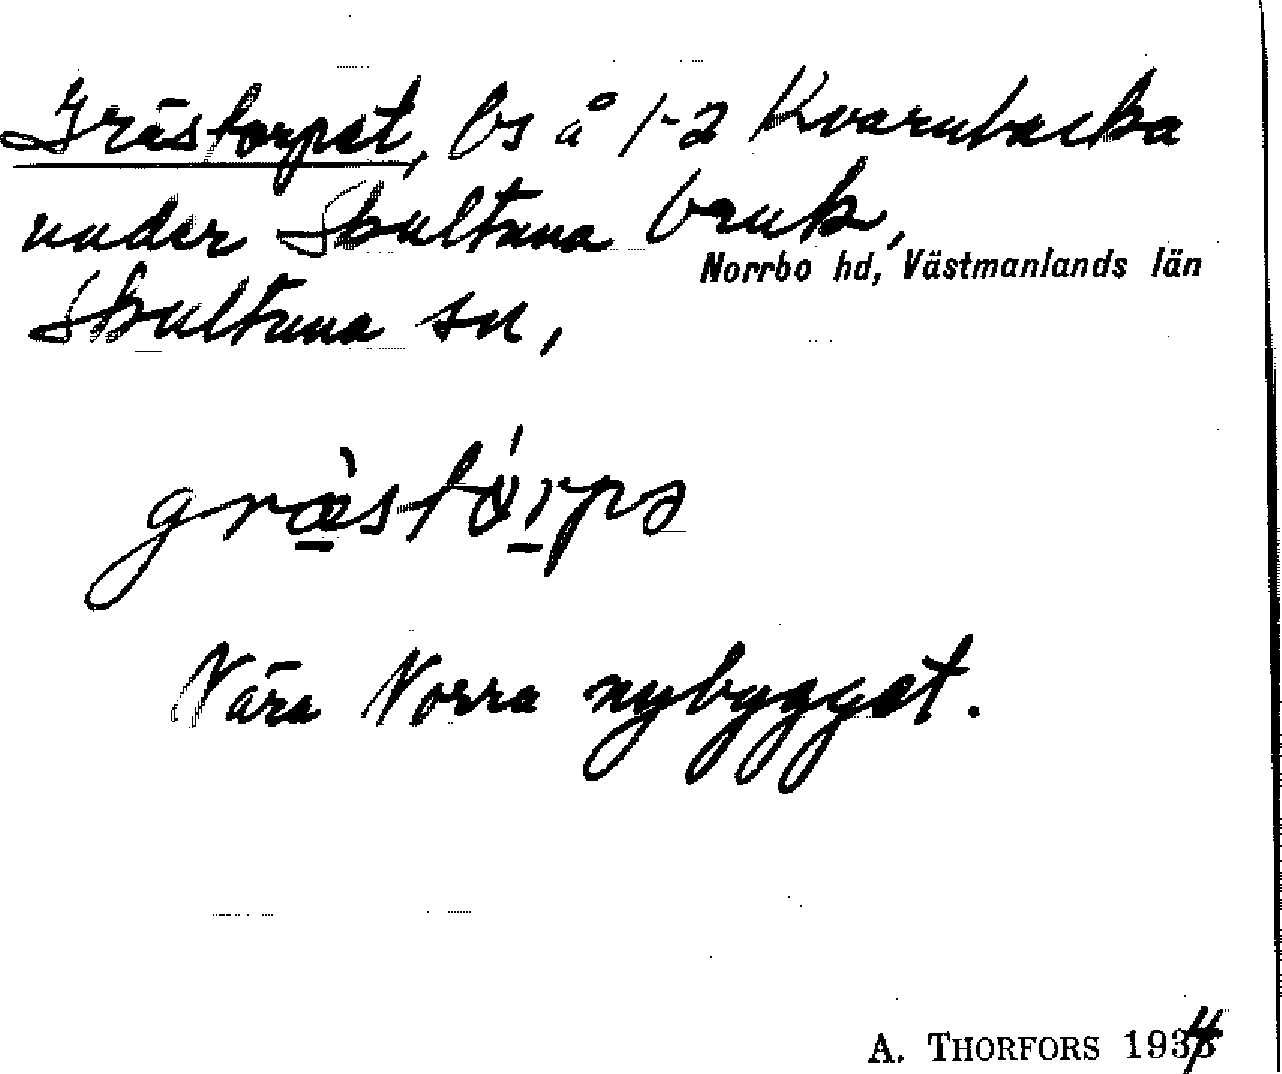 Grästorpet, bs å 1-2 Kvarnbacka
under Skultuna bruk,
Norrbo hd, Västmanlands län
Skultuna sn,
Nära Norra nybygget.
A. THORFORS 1934